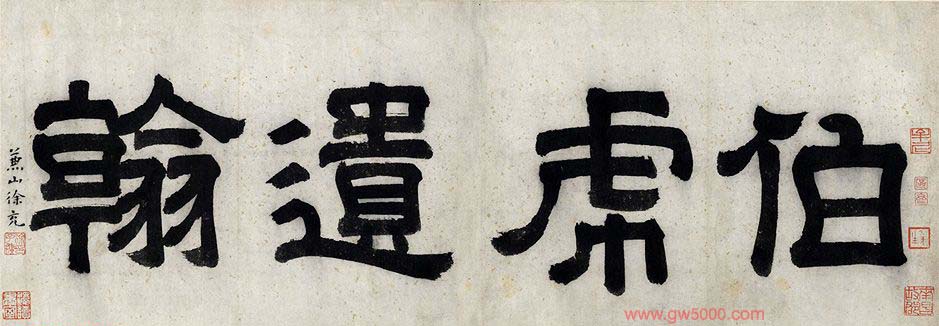 伯虎遺翰
燕山徐充
www.gw5000.com